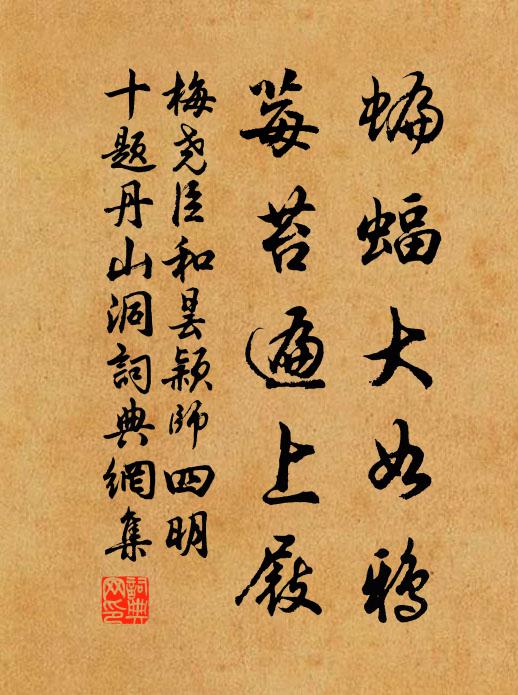 蝙蝠大如鸦
莓苔遍上屐
梅尧臣和昙颖师四明
十题丹山洞詞典網集
詞典网印